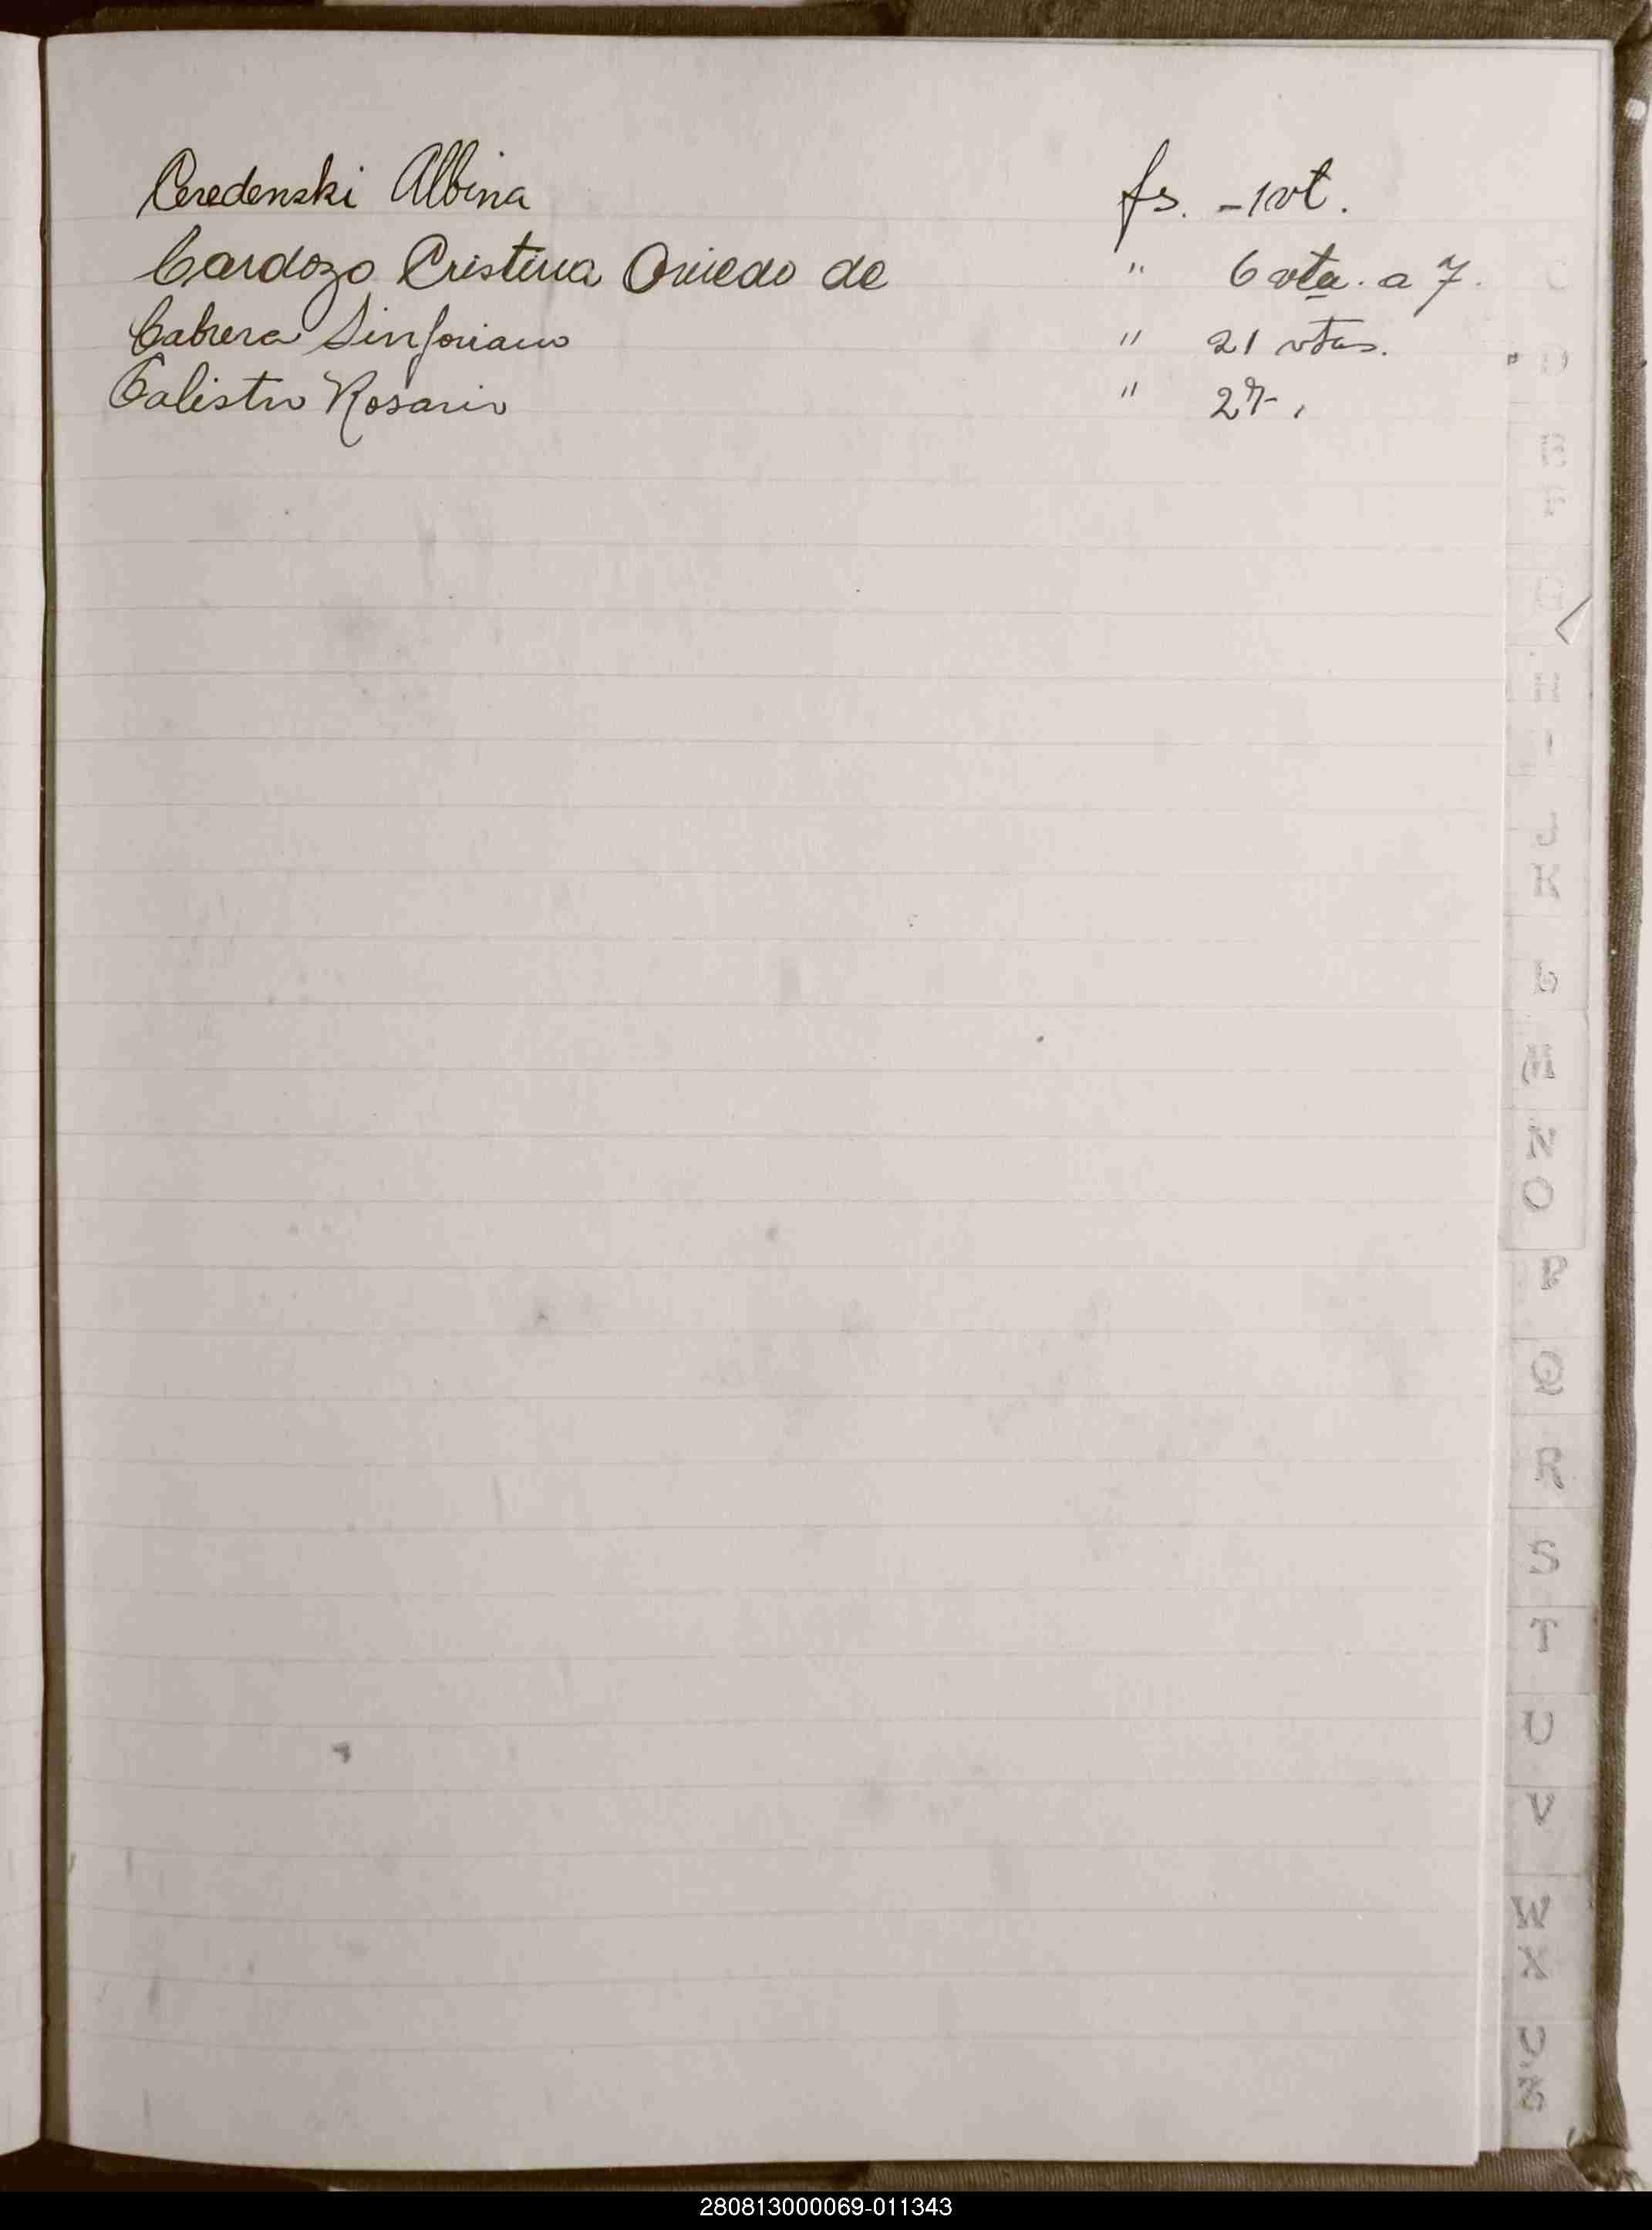 Ceredenski Albina fs. - 1vt.
Cardozo Cristina Oviedo de " 6 vta. a 7.
Cabrera Sinforiano " 21 vtas.
Calistro Rosario " 27.
K
N
O
P
Q
R
S
T
U
V
280813000069-011343